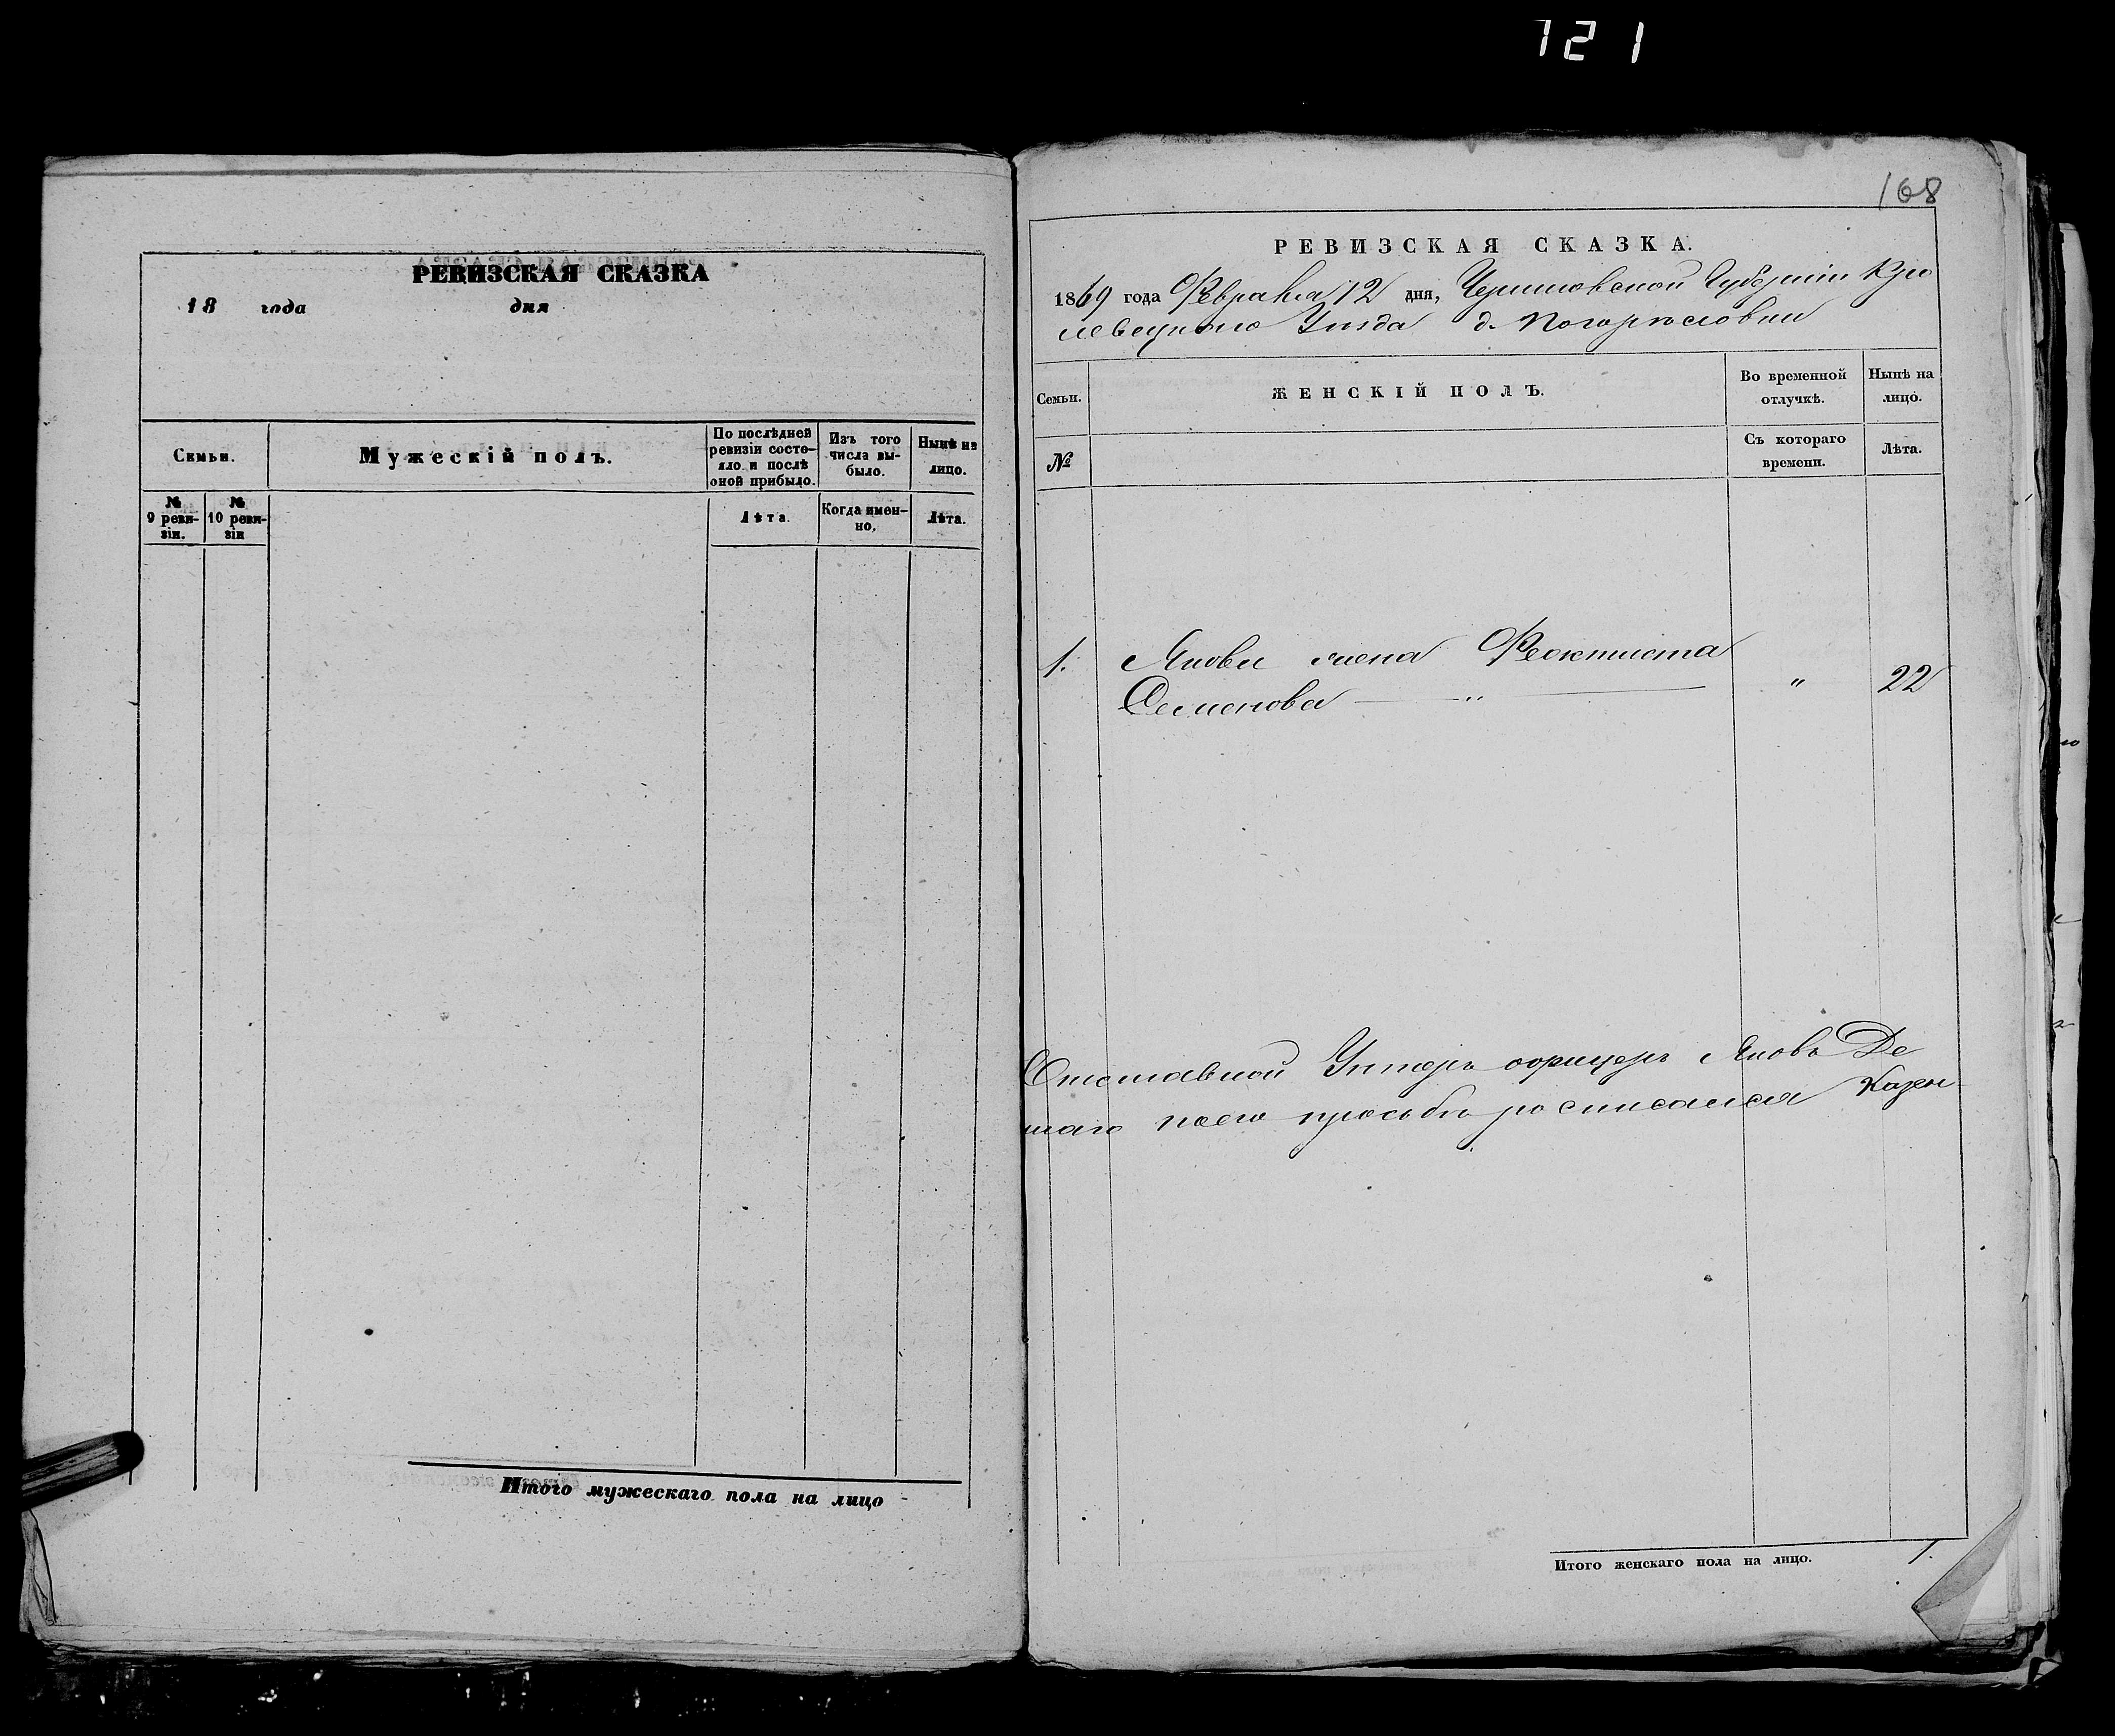 121
РЕВИЗСКАЯ СКАЗКА
18 года дня
Семьи.
Мужескій полъ.
По послѣдней ревизіи состо-
яло и послѣ
оной прибыло.
Изъ того
числа вы-
было.
Нынѣ на
лицо.
№
9 реви-
зіи.
№
10 реви-
зіи
Лѣта.
Когда имен-
но,
Лѣта.
Итого мужескаго пола на лицо
168
РЕВИЗСКАЯ СКАЗКА.
1869 года Февраля 12 дня, Черниговской Губерніи Кро
левецкаго Уѣзда д. Погорѣловки
Семьи.
ЖЕНСКІЙ ПОЛЪ.
Во временной
отлучкѣ.
Нынѣ на
лицо.
№
Съ котораго
времени.
Лѣта.
1. Якова жена Феоктиста
Семенова — " — " 22
Отставной Унтеръ офицеръ Яковъ Де
а поего просьбѣ росписался
Итого женскаго пола на лицо. 1.